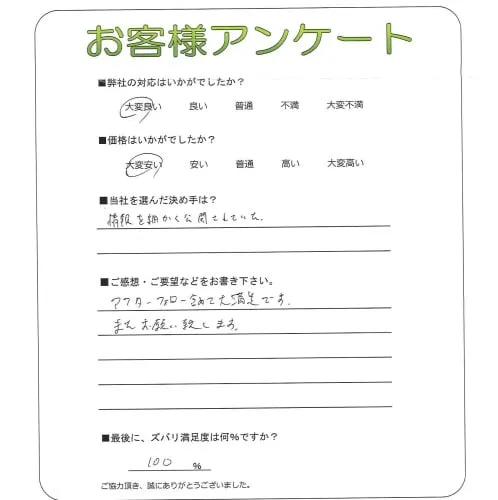 お客様アンケート
■弊社の対応はいかがでしたか？
大変良い 良い 普通 不満 大変不満
■価格はいかがでしたか？
大変安い 安い 普通 高い 大変高い
■当社を選んだ決め手は？
情報を細かく公開されていた。
■ご感想・ご要望などをお書き下さい。
アフターフォロー含めて大満足です。
またお願い致します。
■最後に、ズバリ満足度は何%ですか？
100 %
ご協力頂き、誠にありがとうございました。